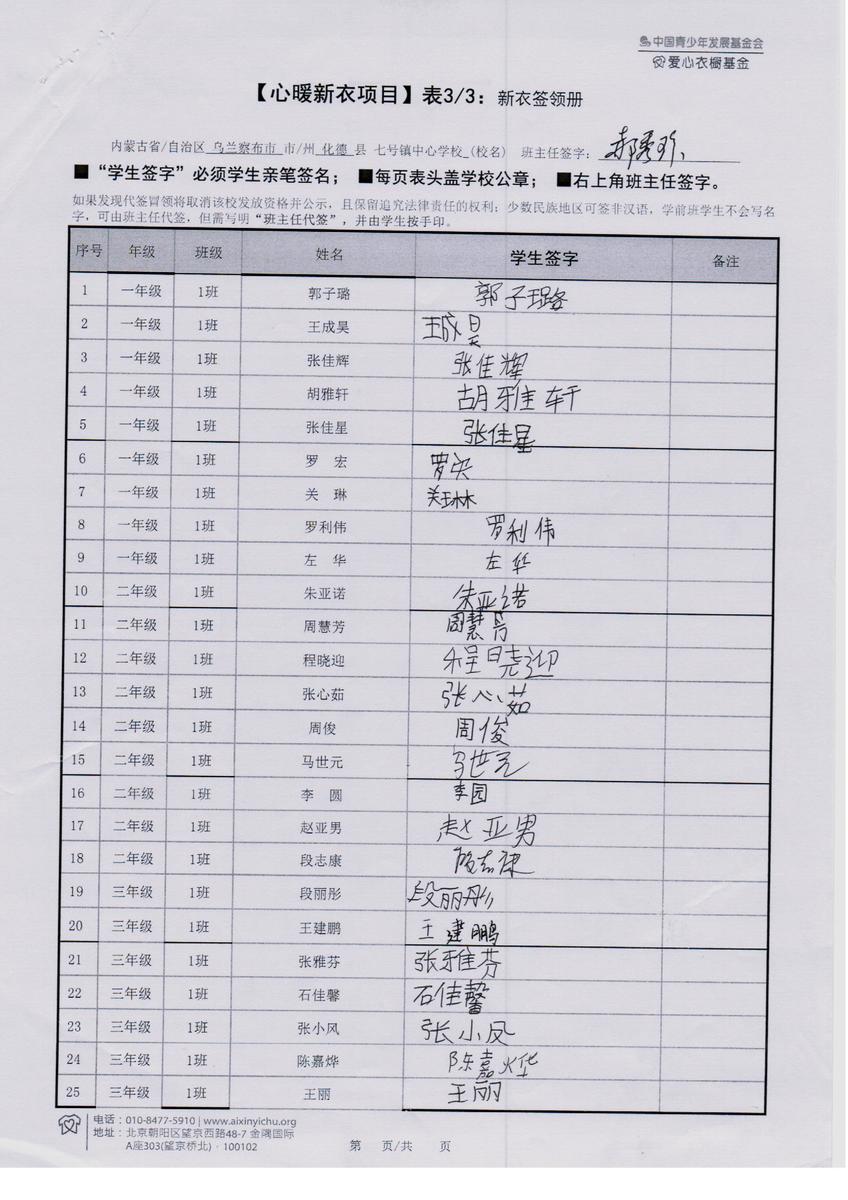 中国青少年发展基金会
爱心衣橱基金
【心暖新衣项目】表3/3：新衣签领册
内蒙古省/自治区 乌兰察布市 市/州 化德 县 七号镇中心学校 (校名) 班主任签字：
■“学生签字”必须学生亲笔签名； ■每页表头盖学校公章； ■右上角班主任签字。
如果发现代签冒领将取消该校发放资格并公示，且保留追究法律责任的权利；少数民族地区可签非汉语，学前班学生不会写名
字，可由班主任代签，但需写明“班主任代签”，并由学生按手印。
序号 年级 班级 姓名 学生签字 备注
1 一年级 1班 郭子璐 郭子璐
2 一年级 1班 王成昊 王成昊
3 一年级 1班 张佳辉 张佳辉
4 一年级 1班 胡雅轩 胡雅轩
5 一年级 1班 张佳星 张佳星
6 一年级 1班 罗 宏 罗
7 一年级 1班 关 琳 关琳
8 一年级 1班 罗利伟 罗利伟
9 一年级 1班 左 华 左华
10 二年级 1班 朱亚诺 朱亚诺
11 二年级 1班 周慧芳 周慧芳
12 二年级 1班 程晓迎 程晓迎
13 二年级 1班 张心茹 张心茹
14 二年级 1班 周俊 周俊
15 二年级 1班 马世元 马世元
16 二年级 1班 李 圆 李园
17 二年级 1班 赵亚男 赵亚男
18 二年级 1班 段志康 段志康
19 三年级 1班 段丽彤 段丽彤
20 三年级 1班 王建鹏 王建鹏
21 三年级 1班 张雅芬 张雅芬
22 三年级 1班 石佳馨 石佳馨
23 三年级 1班 张小风 张小风
24 三年级 1班 陈嘉烨 陈嘉烨
25 三年级 1班 王丽 王丽
电话：010-8477-5910 | www.aixinyichu.org
地址：北京朝阳区望京西路48-7 金隅国际
A座303(望京桥北) · 100102
第 页/共 页